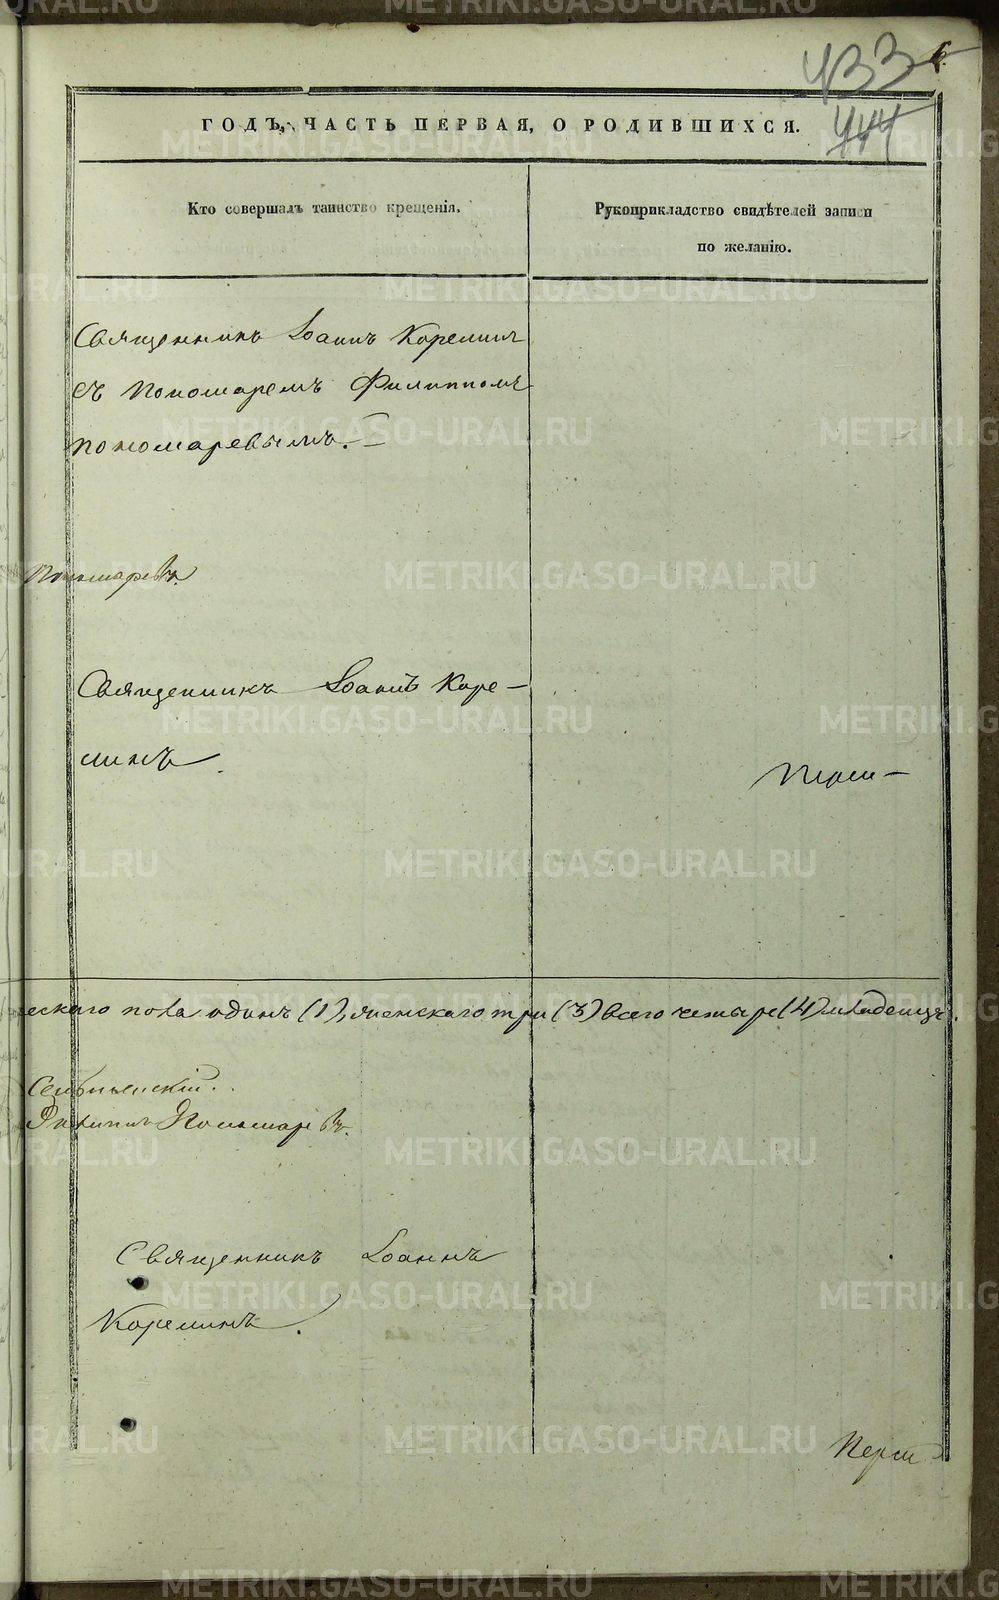 433 6.
ГОДЪ, ЧАСТЬ ПЕРВАЯ, О РОДИВШИХСЯ.
444
Кто совершалъ таинство крещенія.
Рукоприкладство свидѣтелей записи
по желанію.
Священникъ Іоаннъ Корелинъ
съ Пономаремъ Филиппомъ
Пономаревымъ.
Пономаревъ.
Священникъ Іоаннъ Коре-
линъ
ескаго пола одинъ (1), женскаго три (3) всего четыре (4) младенца.
Филиппъ Пономаревъ.
Священникъ Іоаннъ
Корелинъ.
METRIKI.GASO-URAL.RU